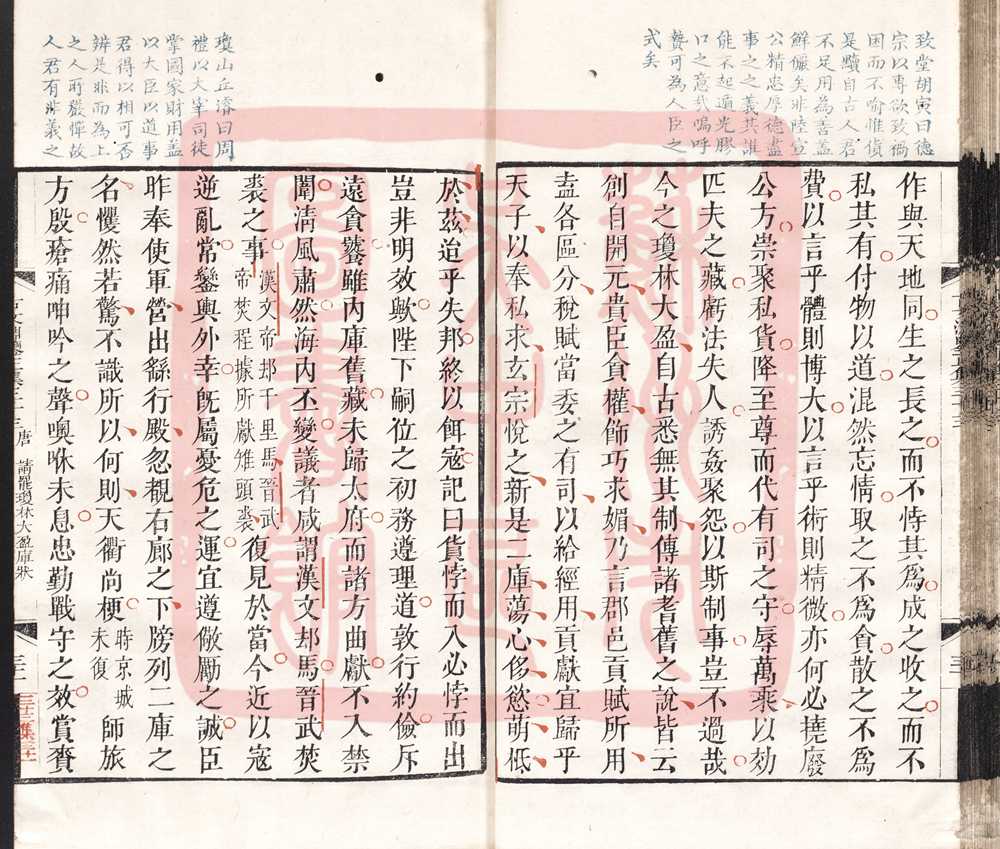 致堂胡寅曰德
宗以專欲致禍
困而不喻惟貨
是黷自古人君
不足用為善蓋
鮮儷矣非陸宣
公精忠厚德盡
事之之義其誰
能不起逋光膠
口之意哉嗚呼
贄可為人臣之
式矣
作與天地同生之長之而不恃其爲成之收之而不
私其有付物以道混然忘情取之不爲貪散之不爲
費以言乎體則博大以言乎術則精微亦何必撓廢
公方崇聚私貨降至尊而代有司之守辱萬乘以効
匹夫之藏虧法失人誘姦聚怨以斯制事豈不過哉
今之瓊林大盈自古悉無其制傳諸耆舊之說皆云
創自開元貴臣貪權飾巧求媚乃言郡邑貢賦所用
盍各區分稅賦當委之有司以給經用貢獻宜歸乎
天子以奉私求玄宗悅之新是二庫蕩心侈慾萌柢
瓊山丘濬曰周
禮以大宰司徒
掌國家財用蓋
以大臣以道事
君得以相可否
辨是非而為上
之人所嚴憚故
人君有非義之
於茲迨乎失邦終以餌寇記曰貨悖而入必悖而出
豈非明效歟陛下嗣位之初務遵理道敦行約儉斥
遠貪饕雖内庫舊藏未歸太府而諸方曲獻不入禁
闈淸風肅然海内丕變議者咸謂漢文却馬晉武焚
裘之事漢文帝却千里馬晉武帝焚程據所獻雉頭裘復見於當今近以寇
逆亂常鑾輿外幸旣屬憂危之運宜遵儆勵之誠臣
昨奉使軍營出繇行殿忽覩右廊之下牓列二庫之
名戄然若驚不識所以何則天衢尚梗時京城未復師旅
方殷瘡痛呻吟之聲噢咻未息忠勤戰守之效賞賚
唐 請罷瓊林大盈庫狀